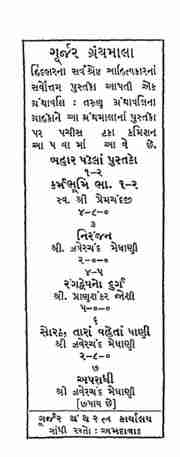 ગૂર્જર ગ્રંથમાલા
હિંદભરના સર્વશ્રેષ્ઠ સાહિત્યકારનાં
સર્વોત્તમ પુસ્તકો આપતી એક
ગ્રંથાવલિ : તરુણ ગ્રંથાવલિના
ગ્રાહકોને આ ગ્રંથમાલાનાં પુસ્તકો
પર પચીસ ટકા કમિશન
આ પ વા માં આ વે છે.
બહાર પડેલાં પુસ્તકો
૧-૨
કર્મભૂમિ ભા. ૧-૨
સ્વ. શ્રી પ્રેમચંદજી
૪-૮-૦
૩
નિરંજન
શ્રી. ઝવેરચંદ મેઘાણી
૨-૦-૦
૪-૫
રંગદ્વેષનો દુર્ગ
શ્રી. પ્રાણશંકર જોશી
૫-૦-૦
૬
સોરઠ, તારાં વહેતાં પાણી
શ્રી. ઝવેરચંદ મેઘાણી
૨-૮-૦
૭
અપરાધી
શ્રી ઝવેરચંદ મેઘાણી
[છપાય છે]
ગૂર્જર ગ્રંથરત્ન કાર્યાલય
ગાંધી રસ્તો : અમદાવાદ